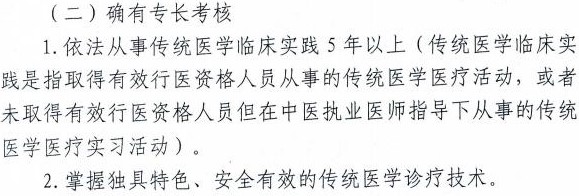 （二）确有专长考核
1.依法从事传统医学临床实践 5 年以上（传统医学临床实
践是指取得有效行医资格人员从事的传统医学医疗活动，或者
未取得有效行医资格人员但在中医执业医师指导下从事的传统
医学医疗实习活动）。
2.掌握独具特色、安全有效的传统医学诊疗技术。